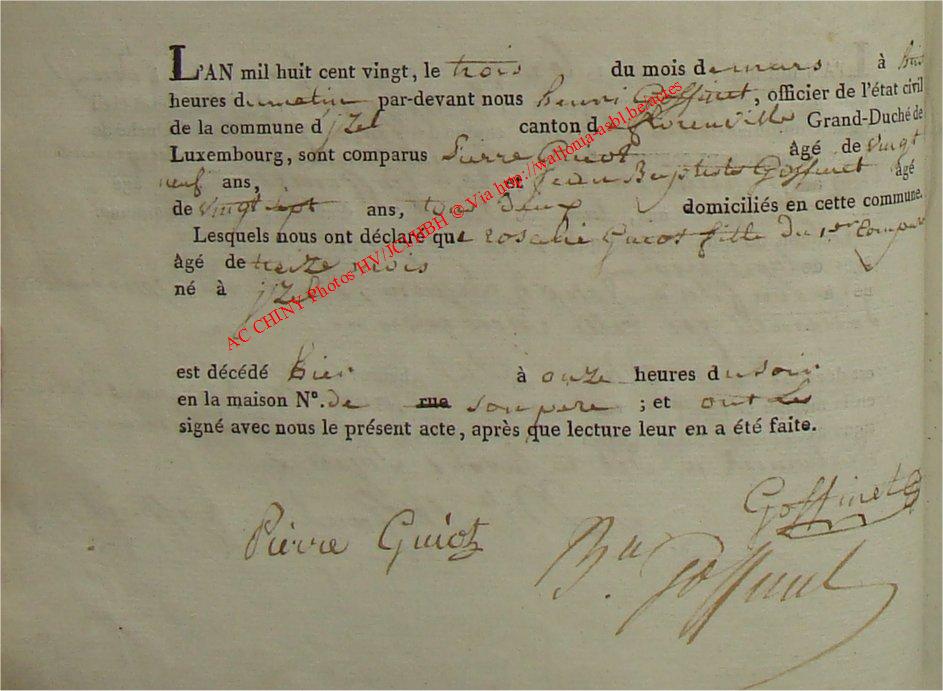 L'AN mil huit cent vingt, le trois du mois de mars à huit
heures du matin par-devant nous henri Goffinet, officier de l'état civil
de la commune d jzel canton d florenville Grand-Duché de
Luxembourg, sont comparus pierre Guiot âgé de vingt
neuf ans, et jean Baptiste Goffinet âgé
de vingt sept ans, tous deux domiciliés en cette commune.
Lesquels nous ont déclaré que rosalie Guiot fille du 1er Compar
âgé de treize mois
né à jzel
est décédé hier à onze heures du soir
en la maison N°. de rue son pere ; et ont les
signé avec nous le présent acte, après que lecture leur en a été faite.
Goffinet
Pierre Guiot
Goffinet
AC CHINY Photos HV/JCP/HBH © Via http://wallonia-asbl.be/actes